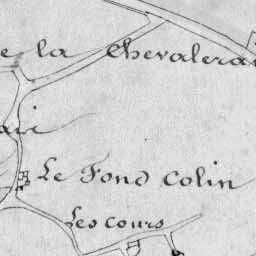 e la Chevalerai
Le Fond Colin
Les cours